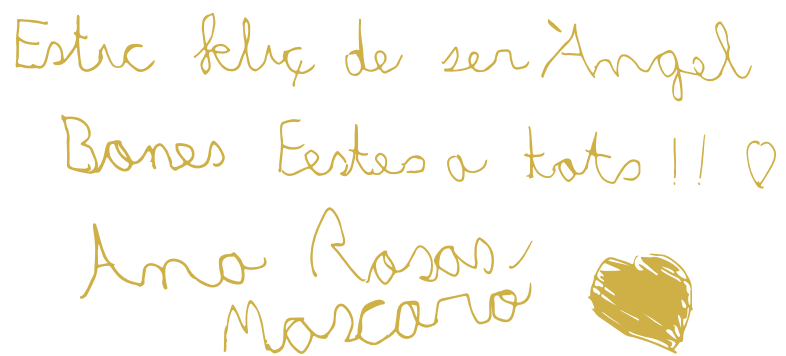 Estic feliç de ser Àngel
Bones Festes a tots!! ♡
Ana Rosas
Mascaró